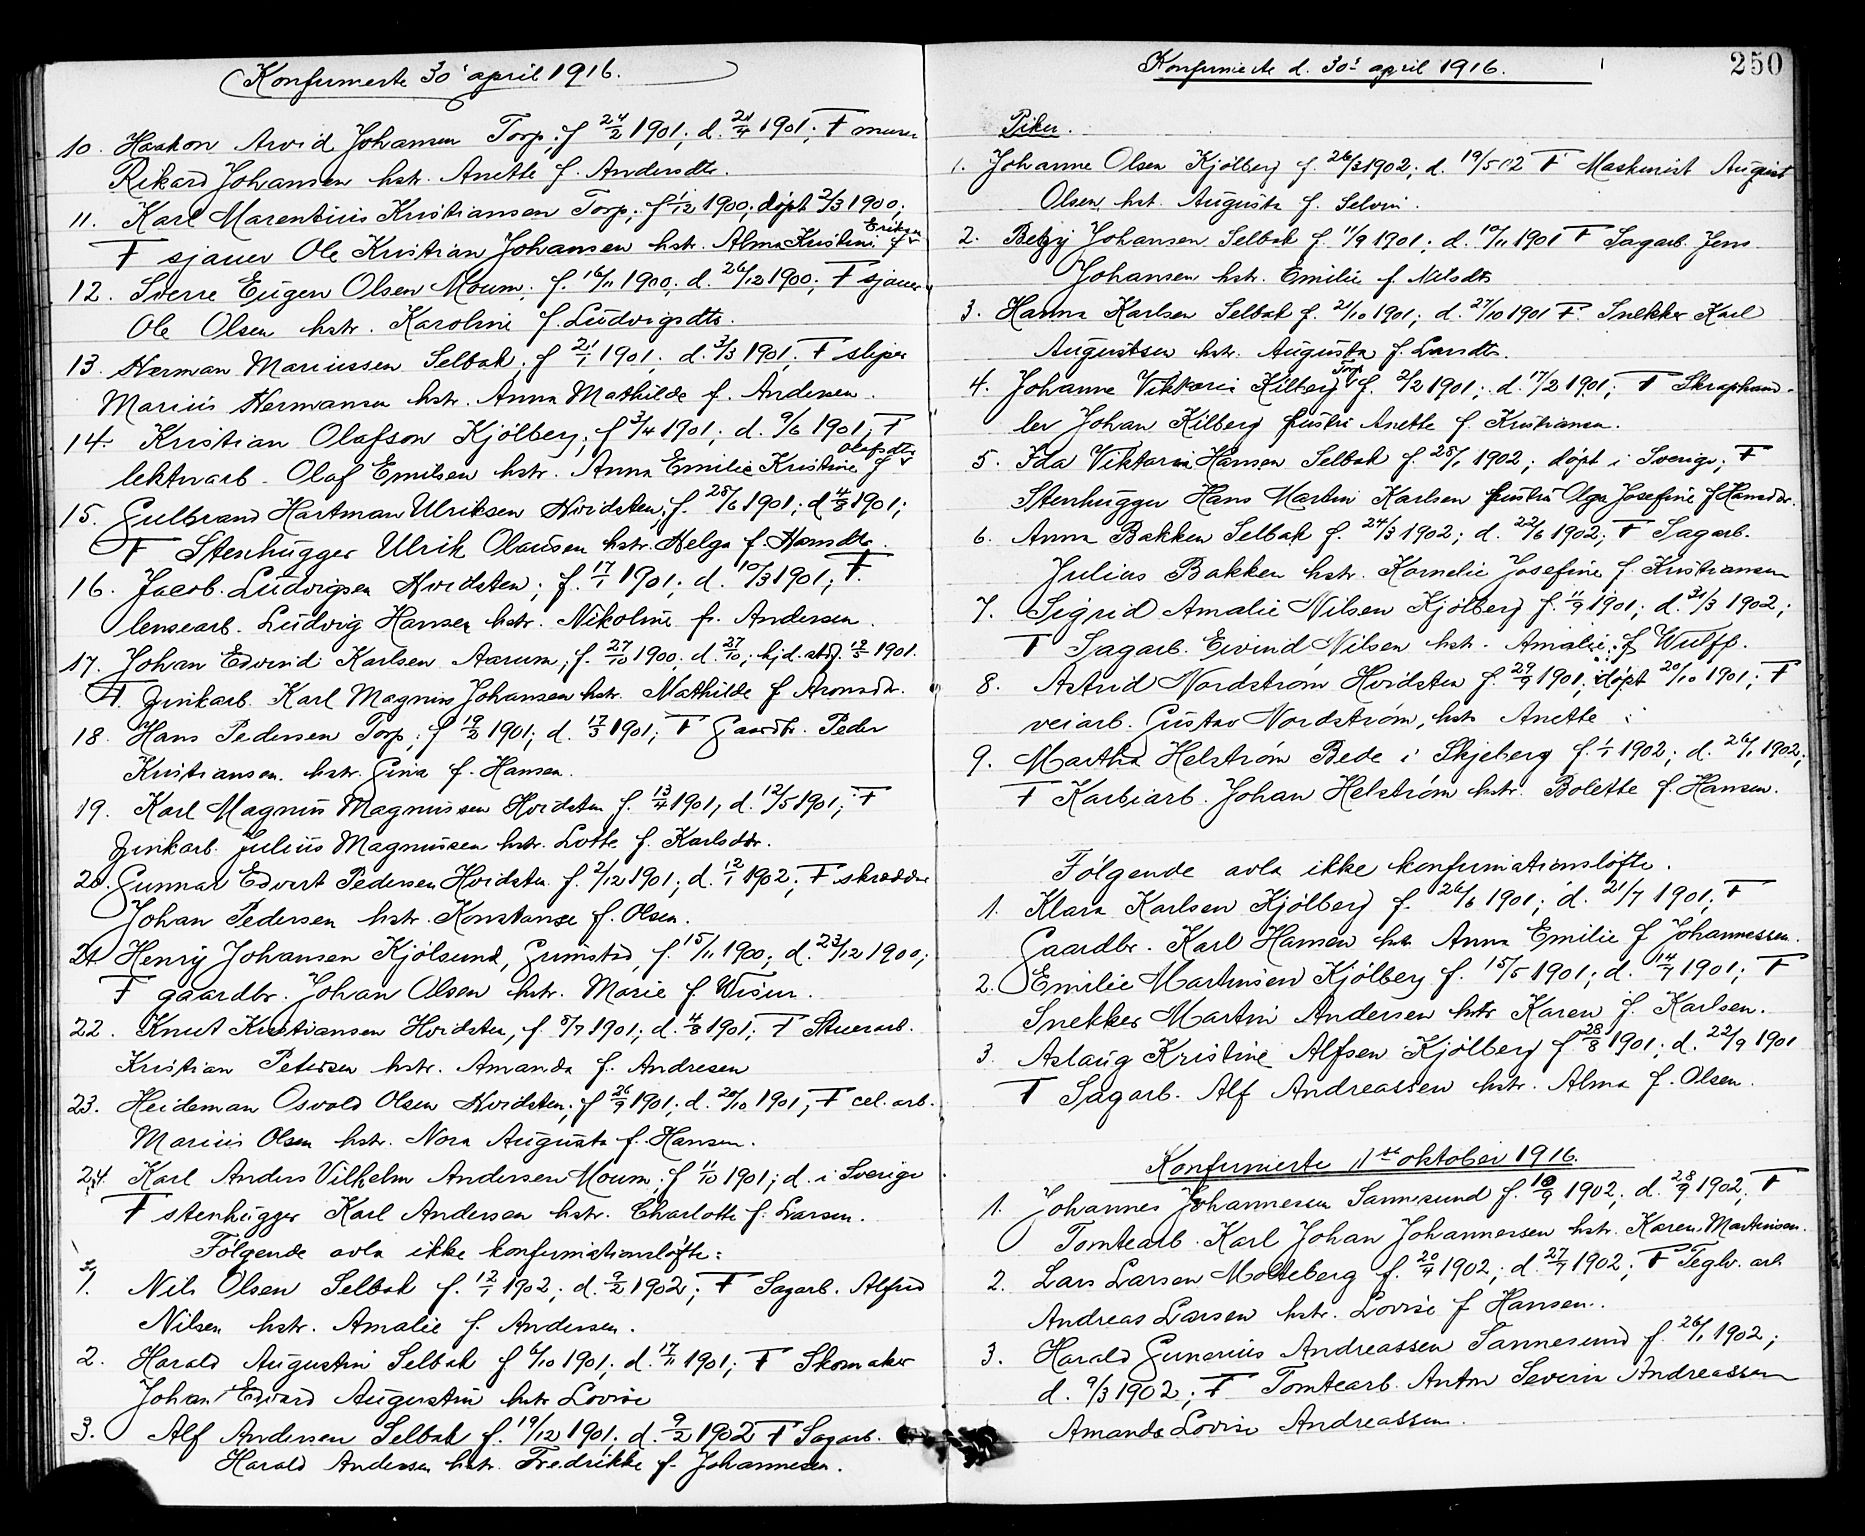 Konfirmerte 30' april 1916.
10. Haakon Arvid Johansen Torp; f 24/2 1901; d. 21/4 1901; F murer
Rikard Johansen hstr. Anette f. Andersdtr.
11. Karl Marentius Kristiansen Torp; f 1/12 1900; døpt 2/3 1900;
F sjauer Ole Kristian Johansen hstr. Alma Kristine f Eriksen
12. Sverre Eugen Olsen Moum; f. 16/11 1900; d. 26/12 1900; F sjauer
Ole Olsen hstr. Karoline f. Ludvigsdtr.
13. Herman Mariussen Selbak; f 21/1 1901; d. 3/3 1901; F sliper
Marius Hermansen hstr. Anna Mathilde f. Andersen.
14. Kristian Olafson Kjölberg; f 3/4 1901; d. 9/6 1901; F
lektrarb. Olaf Emilsen hstr. Anna Emilie Kristine f Olafsdtr
15. Gulbrand Hartman Ulriksen Hvidsten; f. 25/6 1901; d 4/8 1901;
F Stenhugger Ulrik Olausen hstr. Helga f. Hansdtr.
16. Jacob Ludvigsen Hvidsten; f. 17/1 1901; d. 10/3 1901; F.
lensearb. Ludvig Hansen hstr. Nikoline f. Andersen.
17. Johan Edvind Karlsen Aarum; f. 27/10 1900; d. 27/10; hj.d. stdf. 12/5 1901.
F. Zinkarb. Karl Magnus Johansen hstr. Mathilde f Aronsdtr.
18. Hans Pedersen Torp; f 19/2 1901; d. 17/3 1901; F Gaardbr. Peder
Kristiansen hstr. Gina f. Hansen.
19. Karl Magnus Magnussen Hvidsten f. 13/4 1901; d. 12/5 1901; F
Zinkarb. Julius Magnussen hstr. Lotte f. Karlsdtr.
20. Gunnar Edvart Pedersen Hvidsten f. 2/12 1901; d. 12/1 1902; F skrædder
Johan Pedersen hstr. Konstanse f. Olsen.
21 Henry Johansen Kjölsund, Grimstad, f. 15/11 1900; d. 23/12 1900;
F gaardbr. Johan Olsen hstr. Marie f. Wisur.
22. Knut Kristiansen Hvidsten, f. 5/7 1901; d. 4/8 1901; F Stuerarb.
Kristian Petersen hstr. Amanda f. Andresen
23. Heideman Osvald Olsen Hvidsten; f 26/9 1901; d. 20/10 1901; F cel. arb.
Marius Olsen hstr. Nora Augusta f. Hansen.
24. Karl Anders Vilhelm Andersen Moum; f 11/10 1901; d. i Sverige
F stenhugger Karl Andersen hstr. Charlotte f. Larsen.
Følgende avla ikke konfirmationsløfte:
1. Nils Olsen Selbak f. 12/1 1902; d. 9/2 1902; F Sagarb. Alfred
Nilsen hstr. Amalie f. Andersen.
2. Harald Augustin Selbak f 6/10 1901; d. 17/11 1901; F Skomaker
Johan Edvard Augustin hstr Lovise
3. Alf Andersen Selbak f. 19/12 1901; d. 9/2 1902 F Sagarb.
Harald Andersen hstr. Fredrikke f. Johannesen.
Konfirmerte d. 30' april 1916.
250
Piker.
1. Johanne Olsen Kjölberg f. 26/3 1902; d. 19/5 02 F Maskinist August
Olsen, hst. Augusta f. Selvin.
2. Betzy Johansen Selbak f. 11/9 1901; d. 10/11 1901 F Sagarb. Jens
Johansen hstr. Emilie f. Nilsdtr
3. Hanna Karlsen Selbak f. 21/10 1901; d. 27/10 1901 F. Snekker Karl
Augustsen hstr. Augusta f. Larsdtr.
4. Johanne Viktoria Kilberg Torp f. 2/2 1901; d. 17/2 1901; F Skraphand-
ler Johan Kilberg hustru Anette f. Kristiansen.
5. Ida Viktoria Hansen Selbak f. 25/1 1902; døpt i Sverige; F
Stenhugger Hans Martin Karlsen hustru Olga Josefine f Hansdtr.
6. Anna Bakken Selbak f. 24/3 1902; d. 22/6 1902; F Sagarb.
Julius Bakken hstr. Kornelie Josefine f. Kristiansen
7. Sigrid Amalie Nilsen Kjölberg f. 11/9 1901; d. 31/3 1902;
F Sagarb. Eivind Nilsen hstr. Amalie f Wulff.
8. Astrid Nordstrøm Hvidsten f. 29/9 1901; døpt 20/10 1901; F
veiarb. Gustav Nordstrøm, hstr Anette
9. Martha Helstrøm Bede i Skjeberg f. 1/1 1902; d. 26/1 1902;
F Karbiarb. Johan Helstrøm hstr. Bolette f. Hansen.
Følgende avla ikke konfirmationsløfte.
1. Klara Karlsen Kjölberg f. 26/6 1901; d. 21/7 1901; F
Gaardbr. Karl Hansen hstr Anna Emilie f Johannessen.
2. Emilie Martinsen Kjölberg f. 15/5 1901; d. 14/7 1901; F
Snekker Martin Andersen hstr Karen f. Karlsen.
3. Aslaug Kristine Alfsen Kjölberg f 28/8 1901; d. 22/9 1901
F Sagarb. Alf Andreassen hstr. Alma f. Olsen.
Konfirmerte 1ste oktober 1916.
1. Johannes Johannesen Sannesund f. 10/9 1902; d. 28/9 1902; F
Tomtearb. Karl Johan Johannessen hstr. Karen Martinsen.
2. Lars Larsen Molteberg f. 20/4 1902; d. 27/7 1902; F Teglv. arb
Andreas Larsen hstr. Lovise f Hansen.
3. Harald Gunerius Andreassen Sannesund f. 26/1 1902;
d. 9/3 1902; F Tomtearb. Anton Severin Andreassen
Amanda Lovise Andreassen.